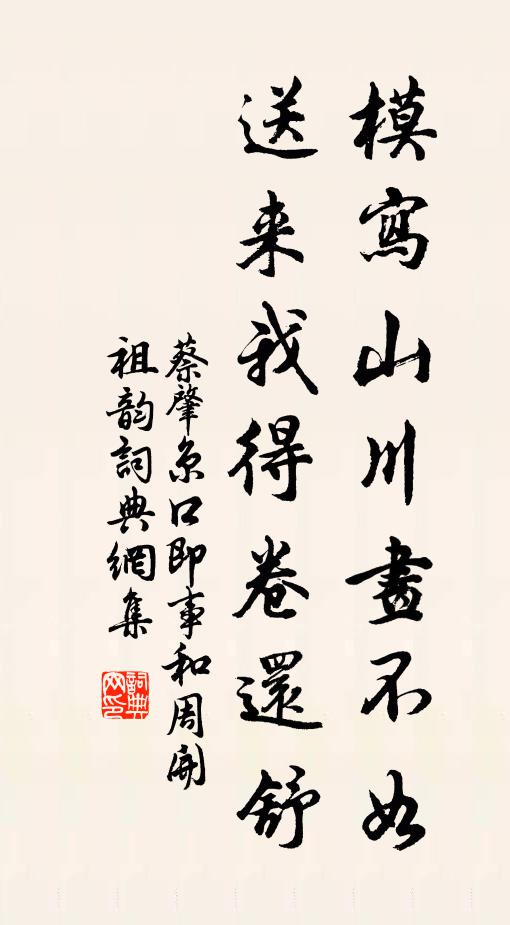 模寫山川畫不如
送来我得卷還舒
蔡肇京口即事和周開
祖韵詞典網集
詞典網印